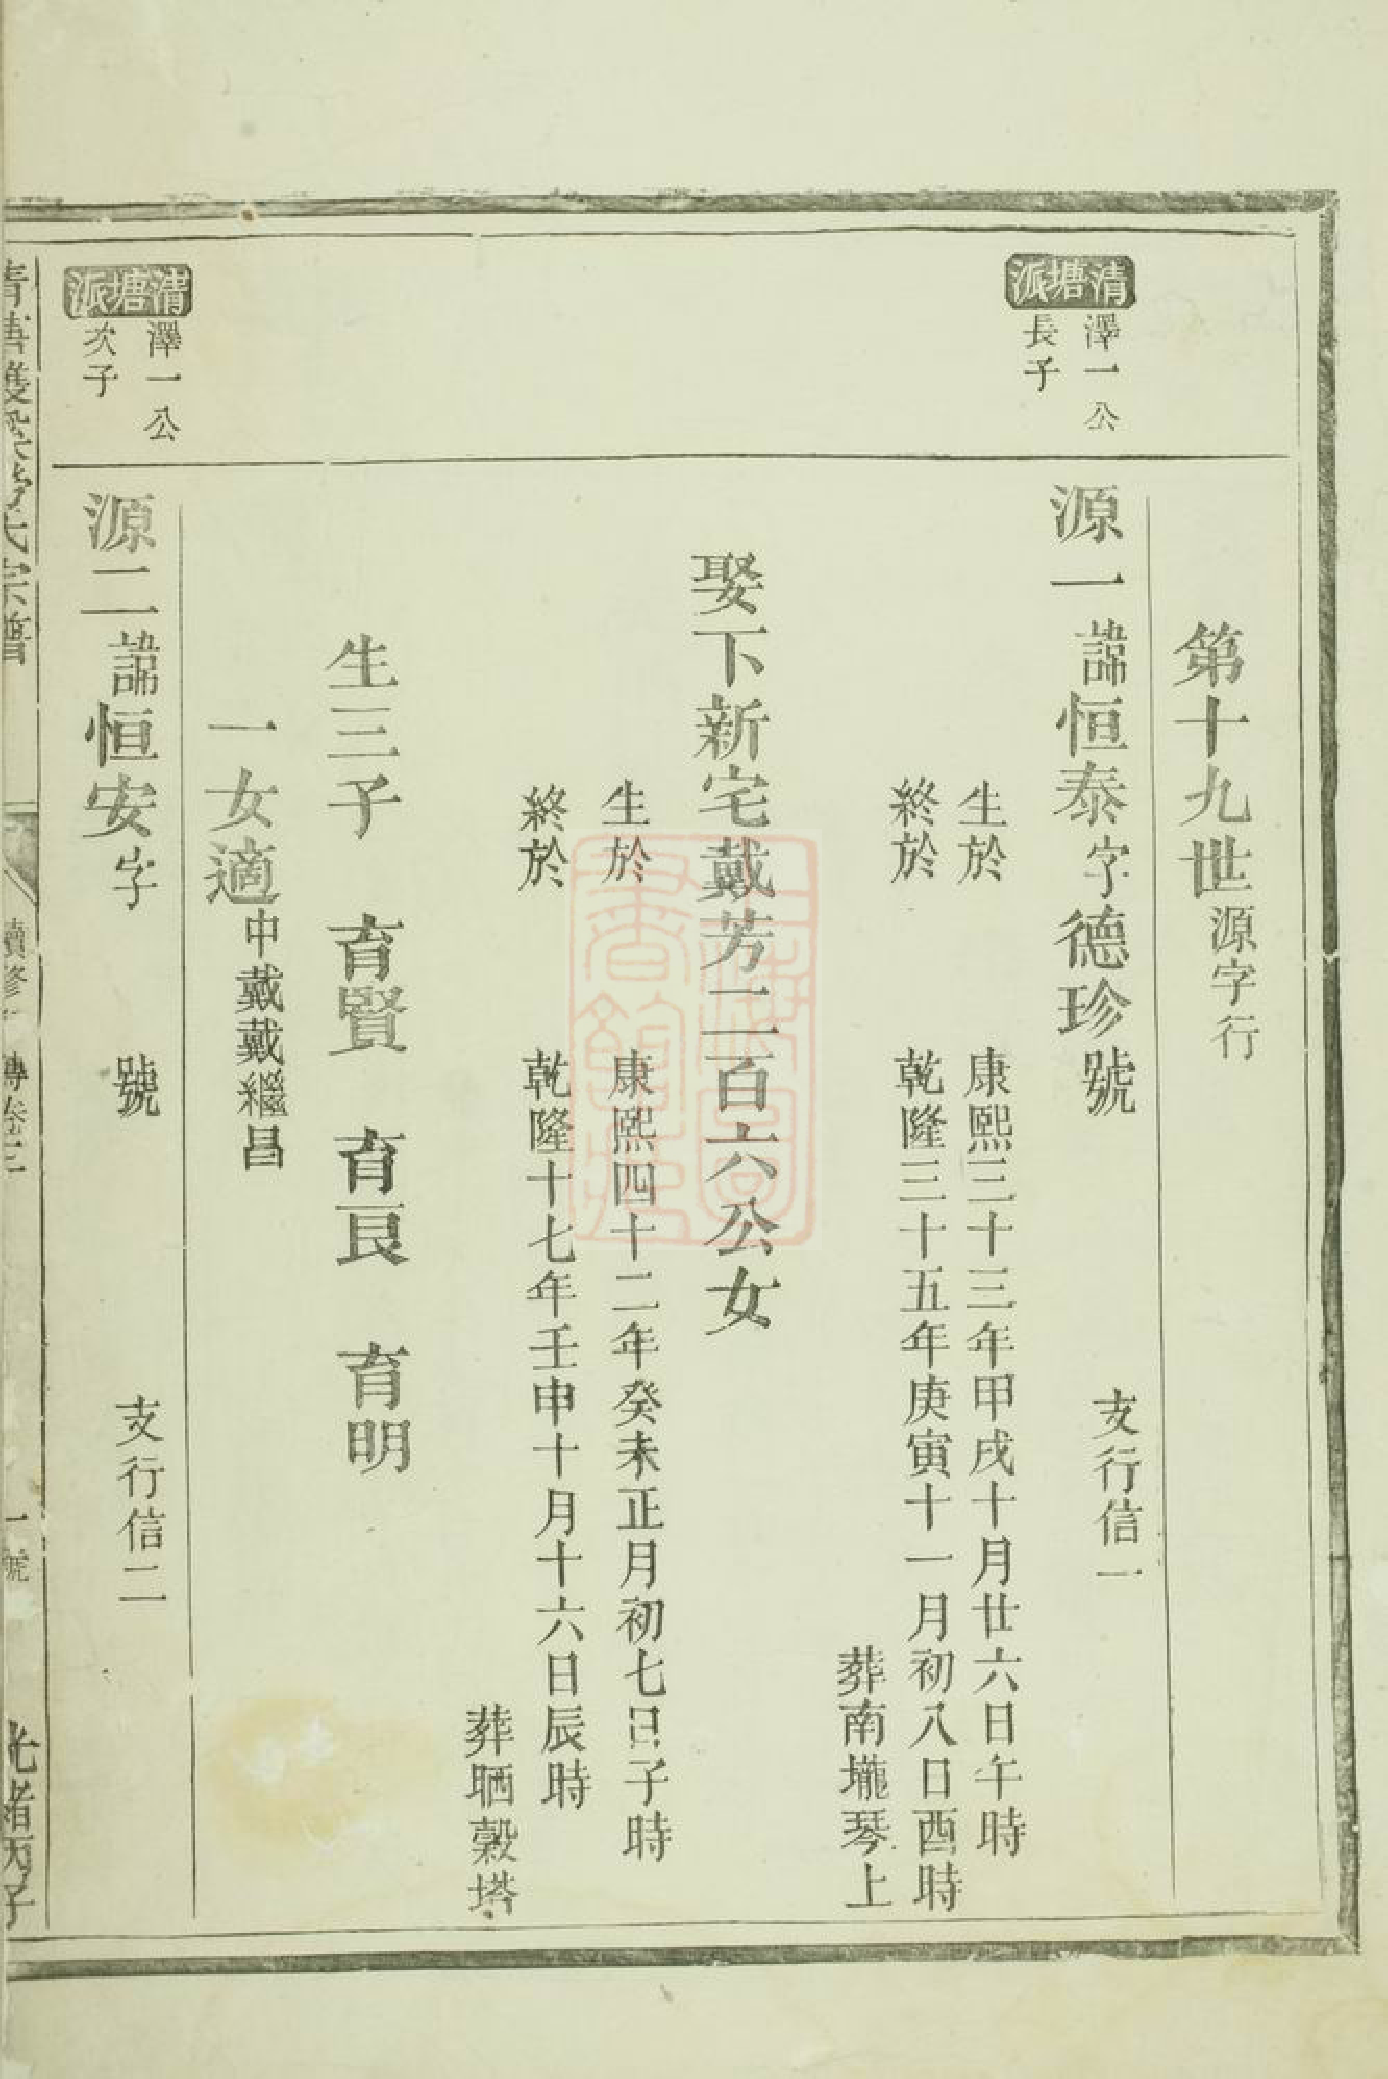 第十九世源字行
清塘派
澤一公
長子
源一諱恒泰字德珍號 支行信一
生於 康熙三十三年甲戌十月廿六日午時
終於 乾隆三十五年庚寅十一月初八日酉時
葬南壠琴上
娶下新宅戴芳二百六公女
生於 康熙四十二年癸未正月初七日子時
終於 乾隆十七年壬申十月十六日辰時
葬晒穀塔
生三子 育賢 育艮 育明
一女適中戴戴繼昌
清塘派
澤一公
次子
源二諱恒安字 號 支行信二
氏宗譜 續修 傳卷三 一號 光緒丙子
上海圖書館藏